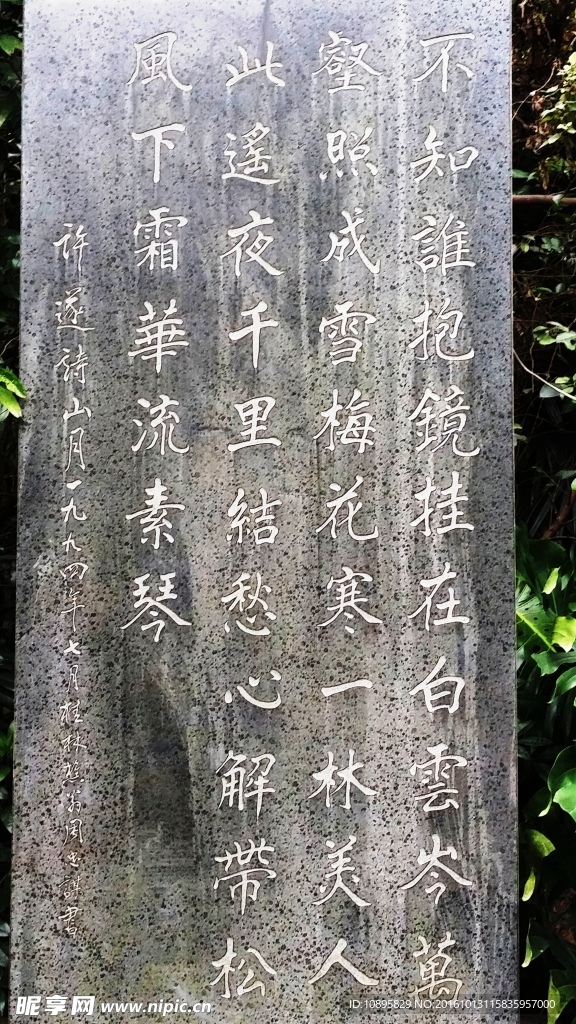 不知誰抱鏡挂在白雲岑萬
壑照成雪梅花寒一林美人
此遙夜千里結愁心解帶松
風下霜華流素琴
許遂詩山月一九九四年七月桂林 翁周 謀書
昵享网 www.nipic.cn
ID:10895829 NO:20161013115835957000